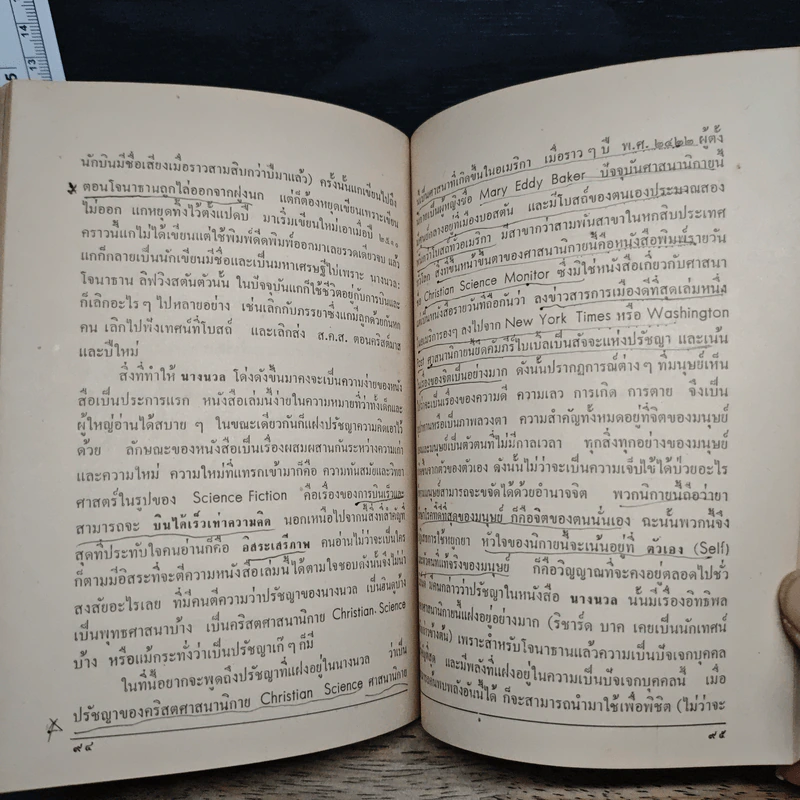 นักบินมีชื่อเสียงเมื่อราวสามสิบกว่าปีมาแล้ว) ครั้งนั้นแกเขียนไปถึง
ตอนโจนาธานถูกไล่ออกจากฝูงนก แต่ก็ต้องหยุดเขียนเพราะเขียน
ไม่ออก แกหยุดทิ้งไว้ตั้งแปดปี มาเริ่มเขียนใหม่เอาเมื่อปี ๒๕๑๐
คราวนี้แกไม่ได้เขียนแต่ใช้พิมพ์ดีดพิมพ์ออกมาเลยรวดเดียวจบ แล้ว
แกก็กลายเป็นนักเขียนมีชื่อและเป็นมหาเศรษฐีไปเพราะ นางนวล:
โจนาธาน ลิฟวิงสตันตัวนั้น ในปัจจุบันแกก็ใช้ชีวิตอยู่กับการบินและ
ก็เลิกอะไรๆ ไปหลายอย่าง เช่นเลิกกับภรรยาซึ่งแกมีลูกด้วยกันหก
คน เลิกไปฟังเทศน์ที่โบสถ์ และเลิกส่ง ส.ค.ส. ตอนคริสต์มาส
และปีใหม่
สิ่งที่ทำให้ นางนวล โด่งดังขึ้นมาคงจะเป็นความง่ายของหนัง
สือเป็นประการแรก หนังสือเล่มนี้ง่ายในความหมายที่ว่าทั้งเด็กและ
ผู้ใหญ่อ่านได้สบาย ๆ ในขณะเดียวกันก็แฝงปรัชญาความคิดเอาไว้
ด้วย ลักษณะของหนังสือเป็นเรื่องผสมผสานกันระหว่างความเก่า
และความใหม่ ความใหม่ที่แทรกเข้ามาก็คือ ความทันสมัยและวิทยา
ศาสตร์ในรูปของ Science Fiction คือเรื่องของการบินเร็วและ
สามารถจะ บินได้เร็วเท่าความคิด นอกเหนือไปจากนั้นสิ่งที่สำคัญที่
สุดที่ประทับใจคนอ่านก็คือ อิสระเสรีภาพ คนอ่านไม่ว่าจะเป็นใคร
ก็ตามมีอิสระที่จะตีความหนังสือเล่มนี้ได้ตามใจชอบดังนั้นจึงไม่น่า
สงสัยอะไรเลย ที่มีคนตีความว่าปรัชญาของนางนวล เป็นฮินดูบ้าง
เป็นพุทธศาสนาบ้าง เป็นคริสตศาสนานิกาย Christian Science
บ้าง หรือแม้กระทั่งว่าเป็นปรัชญาเก๊ ๆ ก็มี
ในที่นี้อยากจะพูดถึงปรัชญาที่แฝงอยู่ในนางนวล ว่าเป็น
ปรัชญาของคริสตศาสนานิกาย Christian Science ศาสนานิกาย
๙๔
เป็นศาสนาที่เกิดขึ้นในอเมริกา เมื่อราว ๆ ปี พ.ศ. ๒๔๒๒ ผู้ตั้ง
เป็นผู้หญิงชื่อ Mary Eddy Baker ปัจจุบันศาสนานิกายนี้
กลางอยู่ที่เมืองบอสตัน และมีโบสถ์ของตนเองประมาณสอง
กว่าโบสถ์ทั่วอเมริกา มีสาขากว่าสามพันสาขาในหกสิบประเทศ
สิ่งที่ขึ้นหน้าขึ้นตาของศาสนานิกายนี้คือหนังสือพิมพ์รายวัน
Christian Science Monitor ซึ่งมิใช่หนังสือเกี่ยวกับศาสนา
เป็นหนังสือรายวันที่ถือกันว่า ลงข่าวสารการเมืองดีที่สุดเล่มหนึ่ง
อเมริการองๆ ลงไปจาก New York Times หรือ Washington
Post ศาสนานิกายนี้ยึดคัมภีร์ไบเบิลเป็นสัจจะแห่งปรัชญา และเน้น
เรื่องของจิตเป็นอย่างมาก ดังนั้นปรากฏการณ์ต่างๆ ที่มนุษย์เห็น
จะเป็นเรื่องของความดี ความเลว การเกิด การตาย จึงเป็น
หรือเป็นภาพลวงตา ความสำคัญทั้งหมดอยู่ที่จิตของมนุษย์
และมนุษย์เป็นตัวตนที่ไม่มีกาลเวลา ทุกสิ่งทุกอย่างของมนุษย์
จากตัวของตัวเอง ดังนั้นไม่ว่าจะเป็นความเจ็บไข้ได้ป่วยอะไร
มนุษย์สามารถจะขจัดได้ด้วยอำนาจจิต พวกนิกายนี้ถือว่ายา
ที่ดีที่สุดของมนุษย์ ก็คือจิตของตนนั่นเอง ฉะนั้นพวกนี้จึง
การใช้หยูกยา หัวใจของนิกายนี้จะเน้นอยู่ที่ ตัวเอง (Self)
ที่แท้จริงของมนุษย์ ก็คือวิญญาณที่จะคงอยู่ตลอดไปชั่ว
มีคนกล่าวว่าปรัชญาในหนังสือ นางนวล นั้นมีเรื่องอิทธิพล
ศาสนานิกายนี้แฝงอยู่อย่างมาก (ริชาร์ด บาค เคยเป็นนักเทศน์
ข้างต้น) เพราะสำหรับโจนาธานแล้วความเป็นปัจเจกบุคคล
ที่สุด และมีพลังที่แฝงอยู่ในความเป็นปัจเจกบุคคลนี้ เมื่อ
ค้นพบพลังอันนี้ได้ ก็จะสามารถนำมาใช้เพื่อพิชิต (ไม่ว่าจะ
๙๕